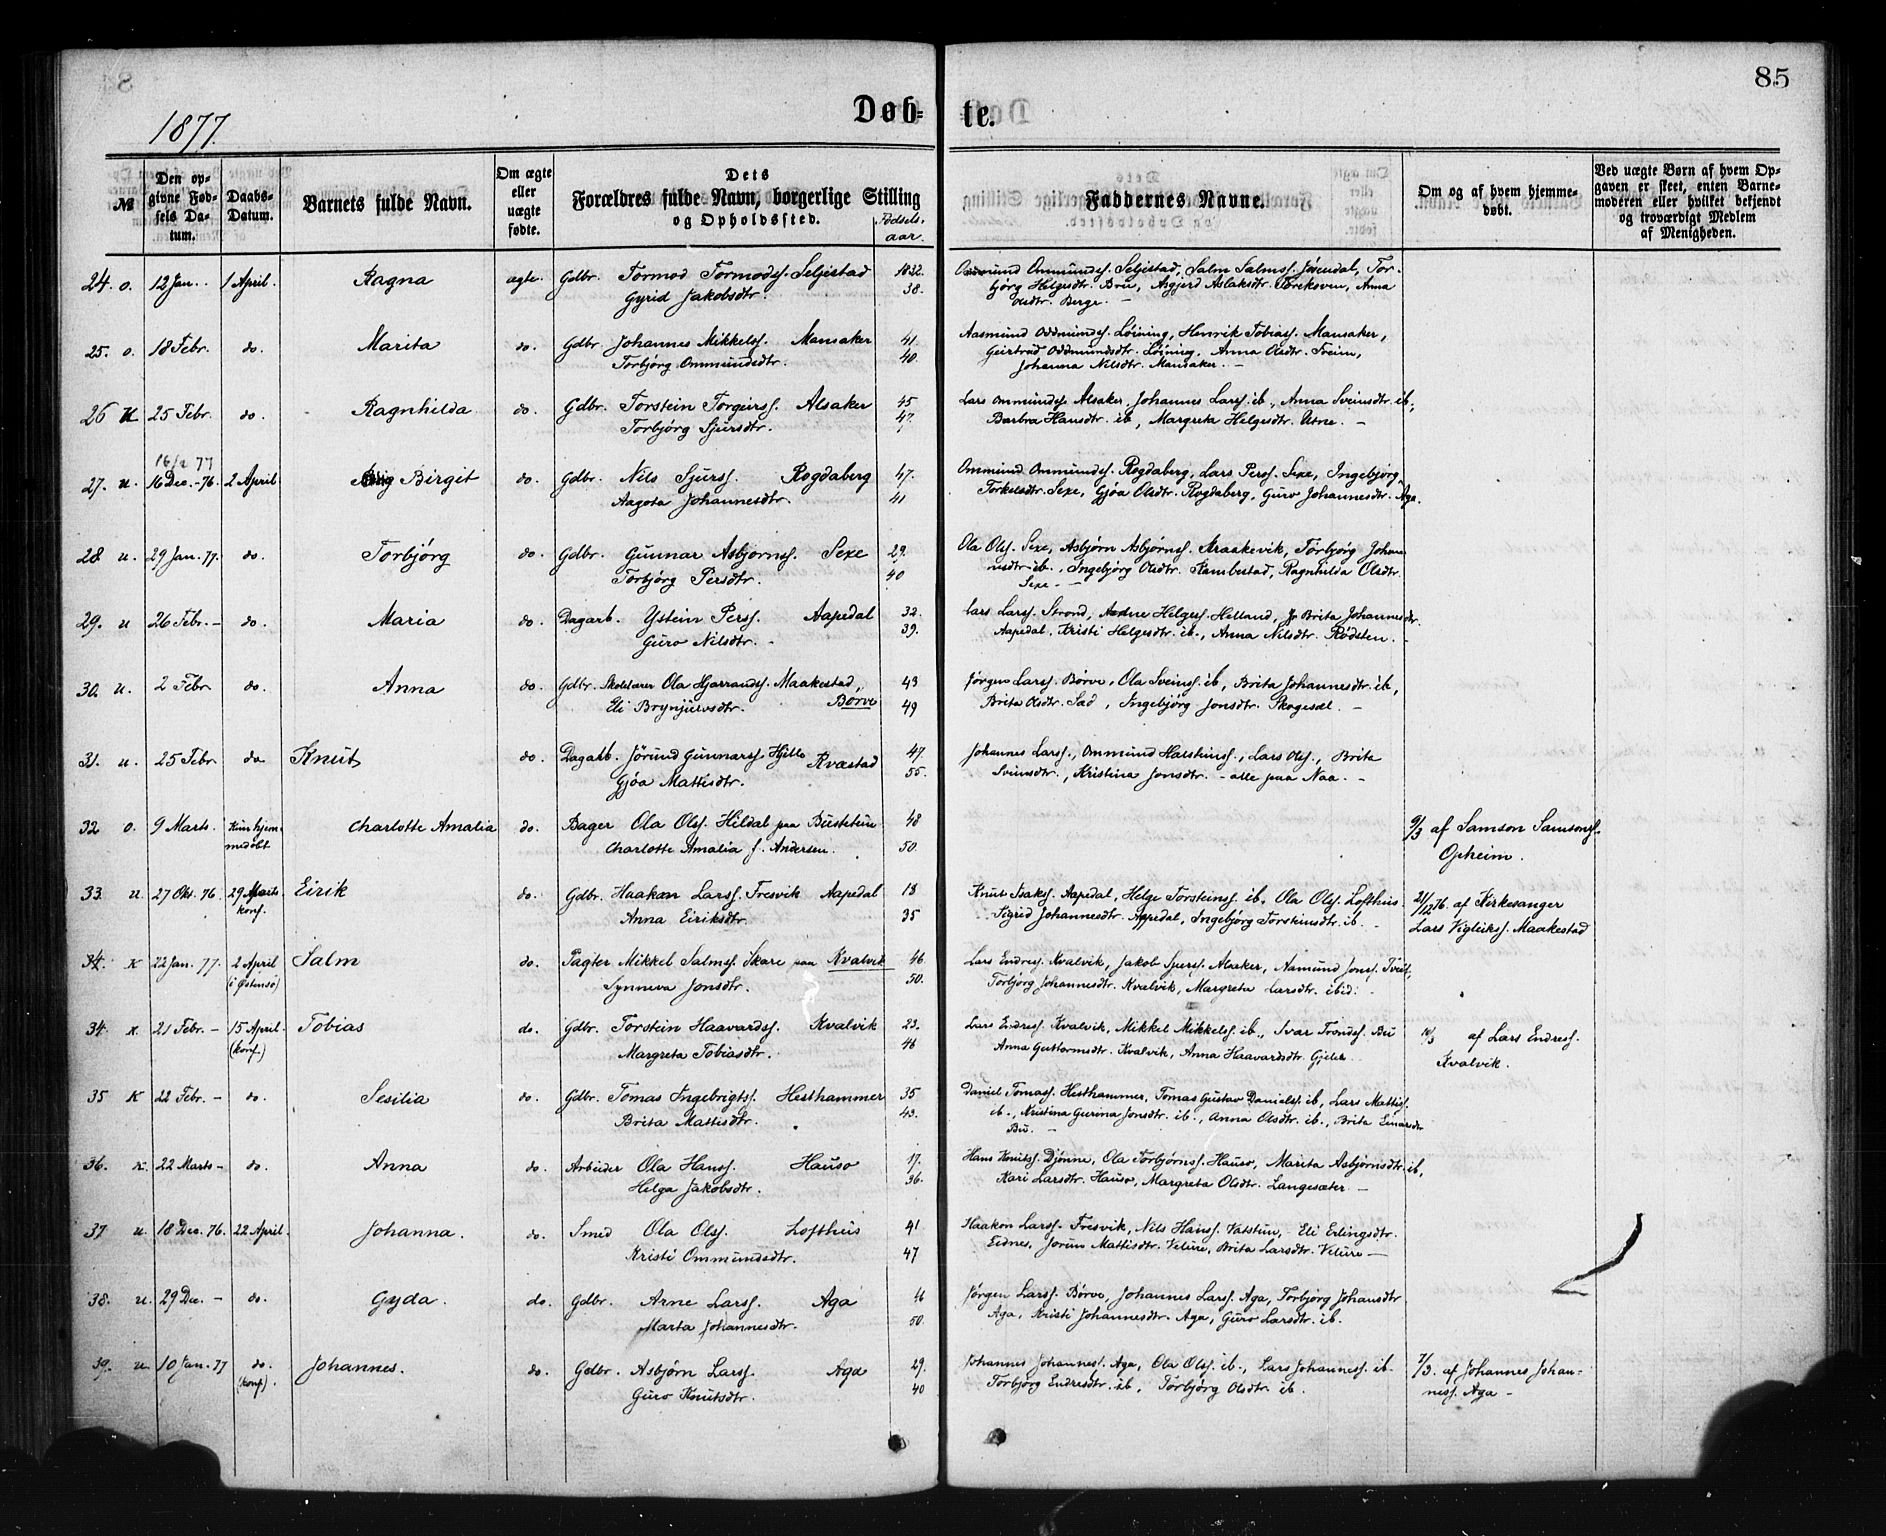 85
1877.
Døb- te.
№
Den opgivne Fødsels Datum.
Daabs-Datum.
Barnets fulde Navn.
Om ægte eller uægte fødte.
Dets Forældres fulde Navn, borgerlige Stilling og Opholdssted.
Fødselsaar.
Faddernes Navne.
Om og af hvem hjemmedøbt.
Ved uægte Børn af hvem Opgaven er skeet, enten Barnemoderen eller hvilket bekjendt og troværdigt Medlem af Menigheden.
24. o. 12 Jan. 1 April. Ragna ægte. Gdbr. Tormod Tormods. Seljestad 1832.
Gyrid Jakobsdtr. 38.
Ommund Ommunds. Seljestad, Salm Salmss. Jøsendal, Tor-
bjørg Helgesdtr. Bru, Asgjerd Aslaksdtr. Anna
Olsdtr. Berge. -
25. o. 18 Febr. do. Marita do. Gdbr. Johannes Mikkelss. Mansaker 41.
Torbjørg Ommundsdtr. 40.
Aasmund Oddmunds. Løining, Henrik Tobiass. Mansaker,
Geirtrud Oddmundsdtr. Løining, Anna Olsdtr. Freim,
Johanna Nilsdtr. Mansaker. -
26 U 25 Febr. do. Ragnhilda do. Gdbr. Torstein Torgeirss. Alsaker 45
Torbjørg Sjursdtr. 47.
Lars Ommunds. Alsaker, Johannes Larss. ib., Anna Sveinsdtr. ib,
Barbra Hansdtr. ib, Margreta Helgesdtr. Utne. -
16/2 77
27. u. 16 Dec. -76. 2 April Birgit do. Gdbr. Nils Sjurss. Rogdaberg 47.
Aagota Johannesdtr. 41
Ommund Ommunds. Rogdaberg, Lars Perss. Sexe, Ingebjørg
Torkelsdtr. Sexe, Gjøa Olsdtr. Rogdaberg, Guro Johannesdtr. Aga.
28 u. 29 Jan. 77. do. Torbjørg do. Gdbr. Gunnar Asbjørnss. Sexe 29.
Torbjørg Persdtr. 40
Ola Olss. Sexe, Asbjørn Asbjørnss. Kraakevik, Torbjørg Johan-
nesdtr. ib., Ingebjørg Olsdtr. Kambestad, Ragnhilda Olsdtr.
Sexe -
29. u 26 Febr. - do. Maria do. Dagarb. Ystein Perss. Aapedal 32.
Guro Nilsdtr. - 39.
Lars Larss. Strond, Helgess. Helland, Brita Johannesdtr.
Aapedal, Kristi Helgesdtr. ib., Anna Nilsdtr. Rødsten. -
30. u. 2 Febr do. Anna do. Gdbr. Skolelærer Ola Hjarrands. Maakestad, 43
Eli Brynjulvsdtr. Børve 49
Jørgen Larss. Børve, Ola Sveinss. ib, Brita Johannesdtr. ib,
Brita Olsdtr. Sad, Ingebjørg Jonsdtr. Skogesæl. -
31. u. 25 Febr do Knut do. Dagarb. Jørund Gunnarss. Hjelle Kvæstad 47.
Gjøa Mattisdtr. 55.
Johannes Larss., Ommund Halsteinss., Lars Olss., Brita
Sveinsdtr., Kristina Jonsdtr. - alle paa Naa. -
32 o. 9 Marts. Kun hjem-
medøbt Charlotte Amalia do. Bager Ola Olss. Hildal paa Bustetun 48
Charlotte Amalia f. Andersen. 50.
9/3 af Samson Samsons.
Opheim.
33. u. 27 Okt. 76. 29 Marts
konf. Eirik do. Gdbr. Haakon Larss. Tresvik Aapedal 18
Anna Eiriksdtr. 35
Knut Isakss. Aapedal, Helge Torsteinss. ib. Ola Olss. Lofthus
Sigrid Johannesdtr. Aapedal, Ingebjørg Torsteinsdtr. ib.
21/12 76. af Kirkesanger
Lars Vigleikss. Maakestad
34. K 22 Jan. 77. 2 April
(i Østensø) Salm do. Pagter Mikkel Salmss. Skare paa Kvalvik 46.
Synneva Jonsdtr. 50.
Lars Endress. Kvalvik, Jakob Sjurss. Alsaker, Aamund Jonss. Tveit,
Torbjørg Johannesdtr. Kvalvik, Margreta Larsdtr. ibid. -
34. K. 21 Febr. - 15 April.
(konf.) Tobias do. Gdbr. Torstein Haavardss. Kvalvik 23.
Margreta Tobiasdtr. 46
Lars Endress. Kvalvik, Mikkel Mikkelss. ib., Ivar Tronds. Bu
Anna Guttormsdtr. Kvalvik, Anna Haavardsdtr.
af Lars Endress.
Kvalvik.
35 K 22 Febr. - do. Sesilia do. Gdbr. Tomas Ingebrigtss. Hesthammer 35
Brita Mattisdtr. 43.
Daniel Tomass. Hesthammer, Tomas Gustav Danielss. ib, Lars Mattiss.
ib., Kristina Gurina Jonsdtr. ib., Anna Olsdtr. ib., Brita Einarsdtr
Bu. -
36. K. 22 Marts - do. Anna do. Arbeider Ola Hanss. Hauso 17.
Helga Jakobsdtr. 36.
Hans Knutss. Djønne, Ola Torbjørnss. Hauso, Marita Asbjørnsdtr. ib,
Kari Larsdtr. Hauso, Margreta Olsdtr. Langesæter -
37 u. 18 Dec. 76. 22 April. Johanna. do. Smed Ola Olss. Lofthus 41
Kristi Ommundsdtr. 47
Haakon Larss. Tresvik, Nils Hanss. Vatstun, Eli Erlingsdtr.
Eidnes, Jorun Mattisdtr. Velure, Brita Larsdtr. Velure -
38. u. 29 Dec. - do. Gyda. do. Gdbr. Arne Larss. Aga 46
Marta Johannesdtr. 50.
Jørgen Larss. Børve, Johannes Larss. Aga, Torbjørg Johansdtr.
Aga, Kristi Johannesdtr. Aga, Guro Larsdtr. ib.
39. u. 10 Jan. 77 do.
(konf.) Johannes. do. Gdbr. Asbjørn Larss. Aga 29.
Guro Knutsdtr. 40
Johannes Johanness. Aga, Ola Olss. ib., Lars Johanness. ib.
Torbjørg Endresdtr. ib, Torbjørg Olsdtr. ib.
7/3. af Johannes Johan-
ness. Aga -